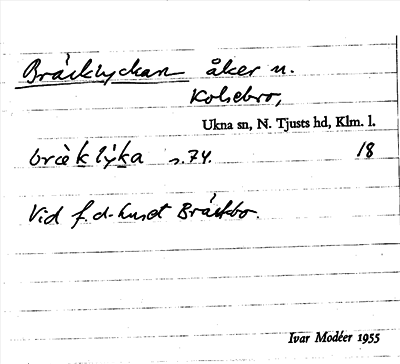 Bräcklyckan åker u.
Kolsebro,
Ukna sn, N. Tjusts hd, Klm. l.
bræ̀klỳka s. 74. 18
Vid f.d. huset Bräckbo.
Ivar Modéer 1955